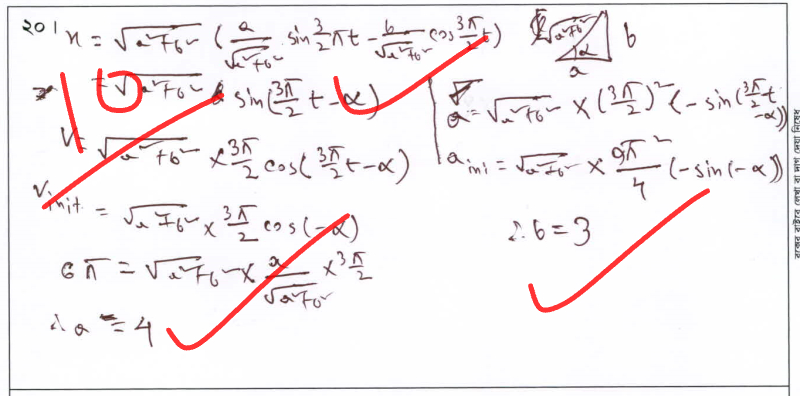 20।
x = √a²+b² ( a/√a²+b² sin 3/2 πt - b/√a²+b² cos 3π/2 t)
= √a²+b² sin(3π/2 t - α)
V = √a²+b² × 3π/2 cos(3π/2 t - α)
Vinit. = √a²+b² × 3π/2 cos(-α)
6π = √a²+b² × a/√a²+b² × 3π/2
∴ a = 4
√a²+b² b
α
a
a = √a²+b² × (3π/2)² (- sin(3π/2 t - α))
a ini = √a²+b² × 9π²/4 (- sin(-α))
∴ b = 3
10
বক্সের বাইরে লেখা বা দাগ দেয়া নিষেধ